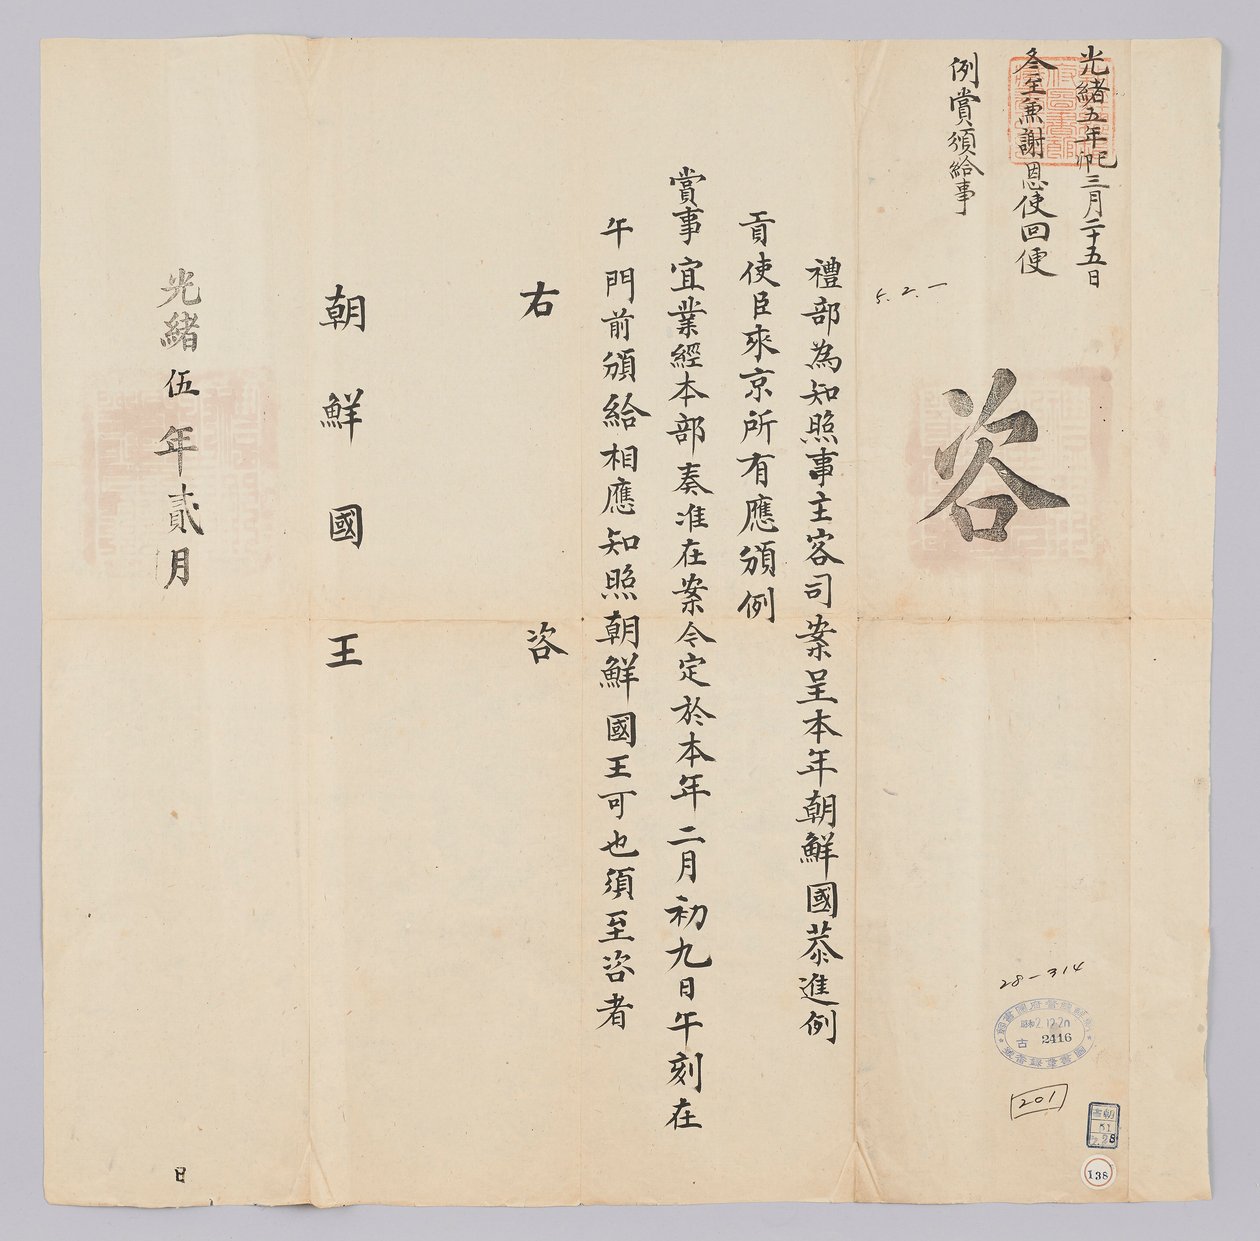 光緒五年己卯三月二十五日
冬至兼謝恩使回便
例賞頒給事
5.2.一
咨
禮部為知照事主客司案呈本年朝鮮國恭進例
貢使臣來京所有應頒例
賞事宜業經本部奏准在案令定於本年二月初九日午刻在
午門前頒給相應知照朝鮮國王可也須至咨者
右咨
朝鮮國王
光緒伍年貳月
日
28-314
昭和2.12.20
古 2416
201
138